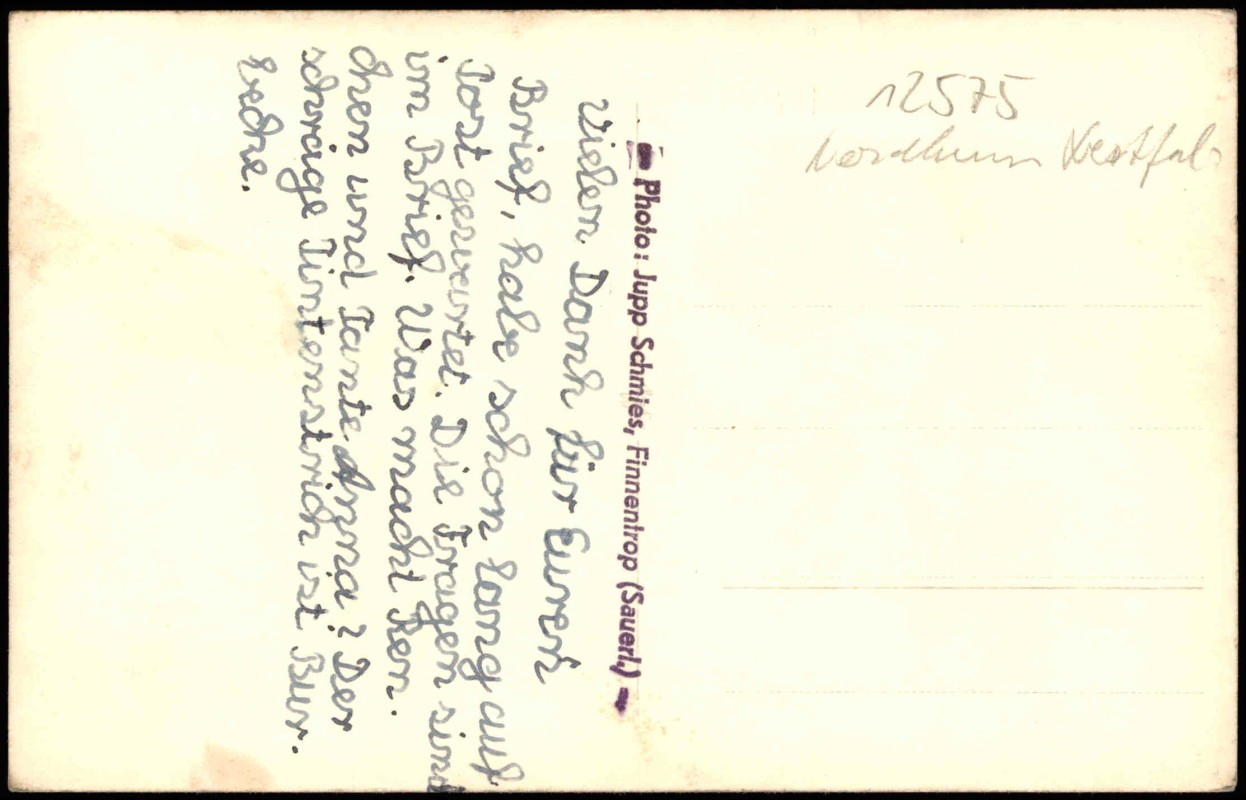 12575
Nordrhein Westfal.
Photo: Jupp Schmies, Finnentrop (Sauerl.)
Vielen Dank für Euren
Brief, habe schon lang auf
Post gewartet. Die Fragen sind
im Brief. Was macht Ren.
chen und Tante Anna? Der
schräge Tintenstrich ist Bur.